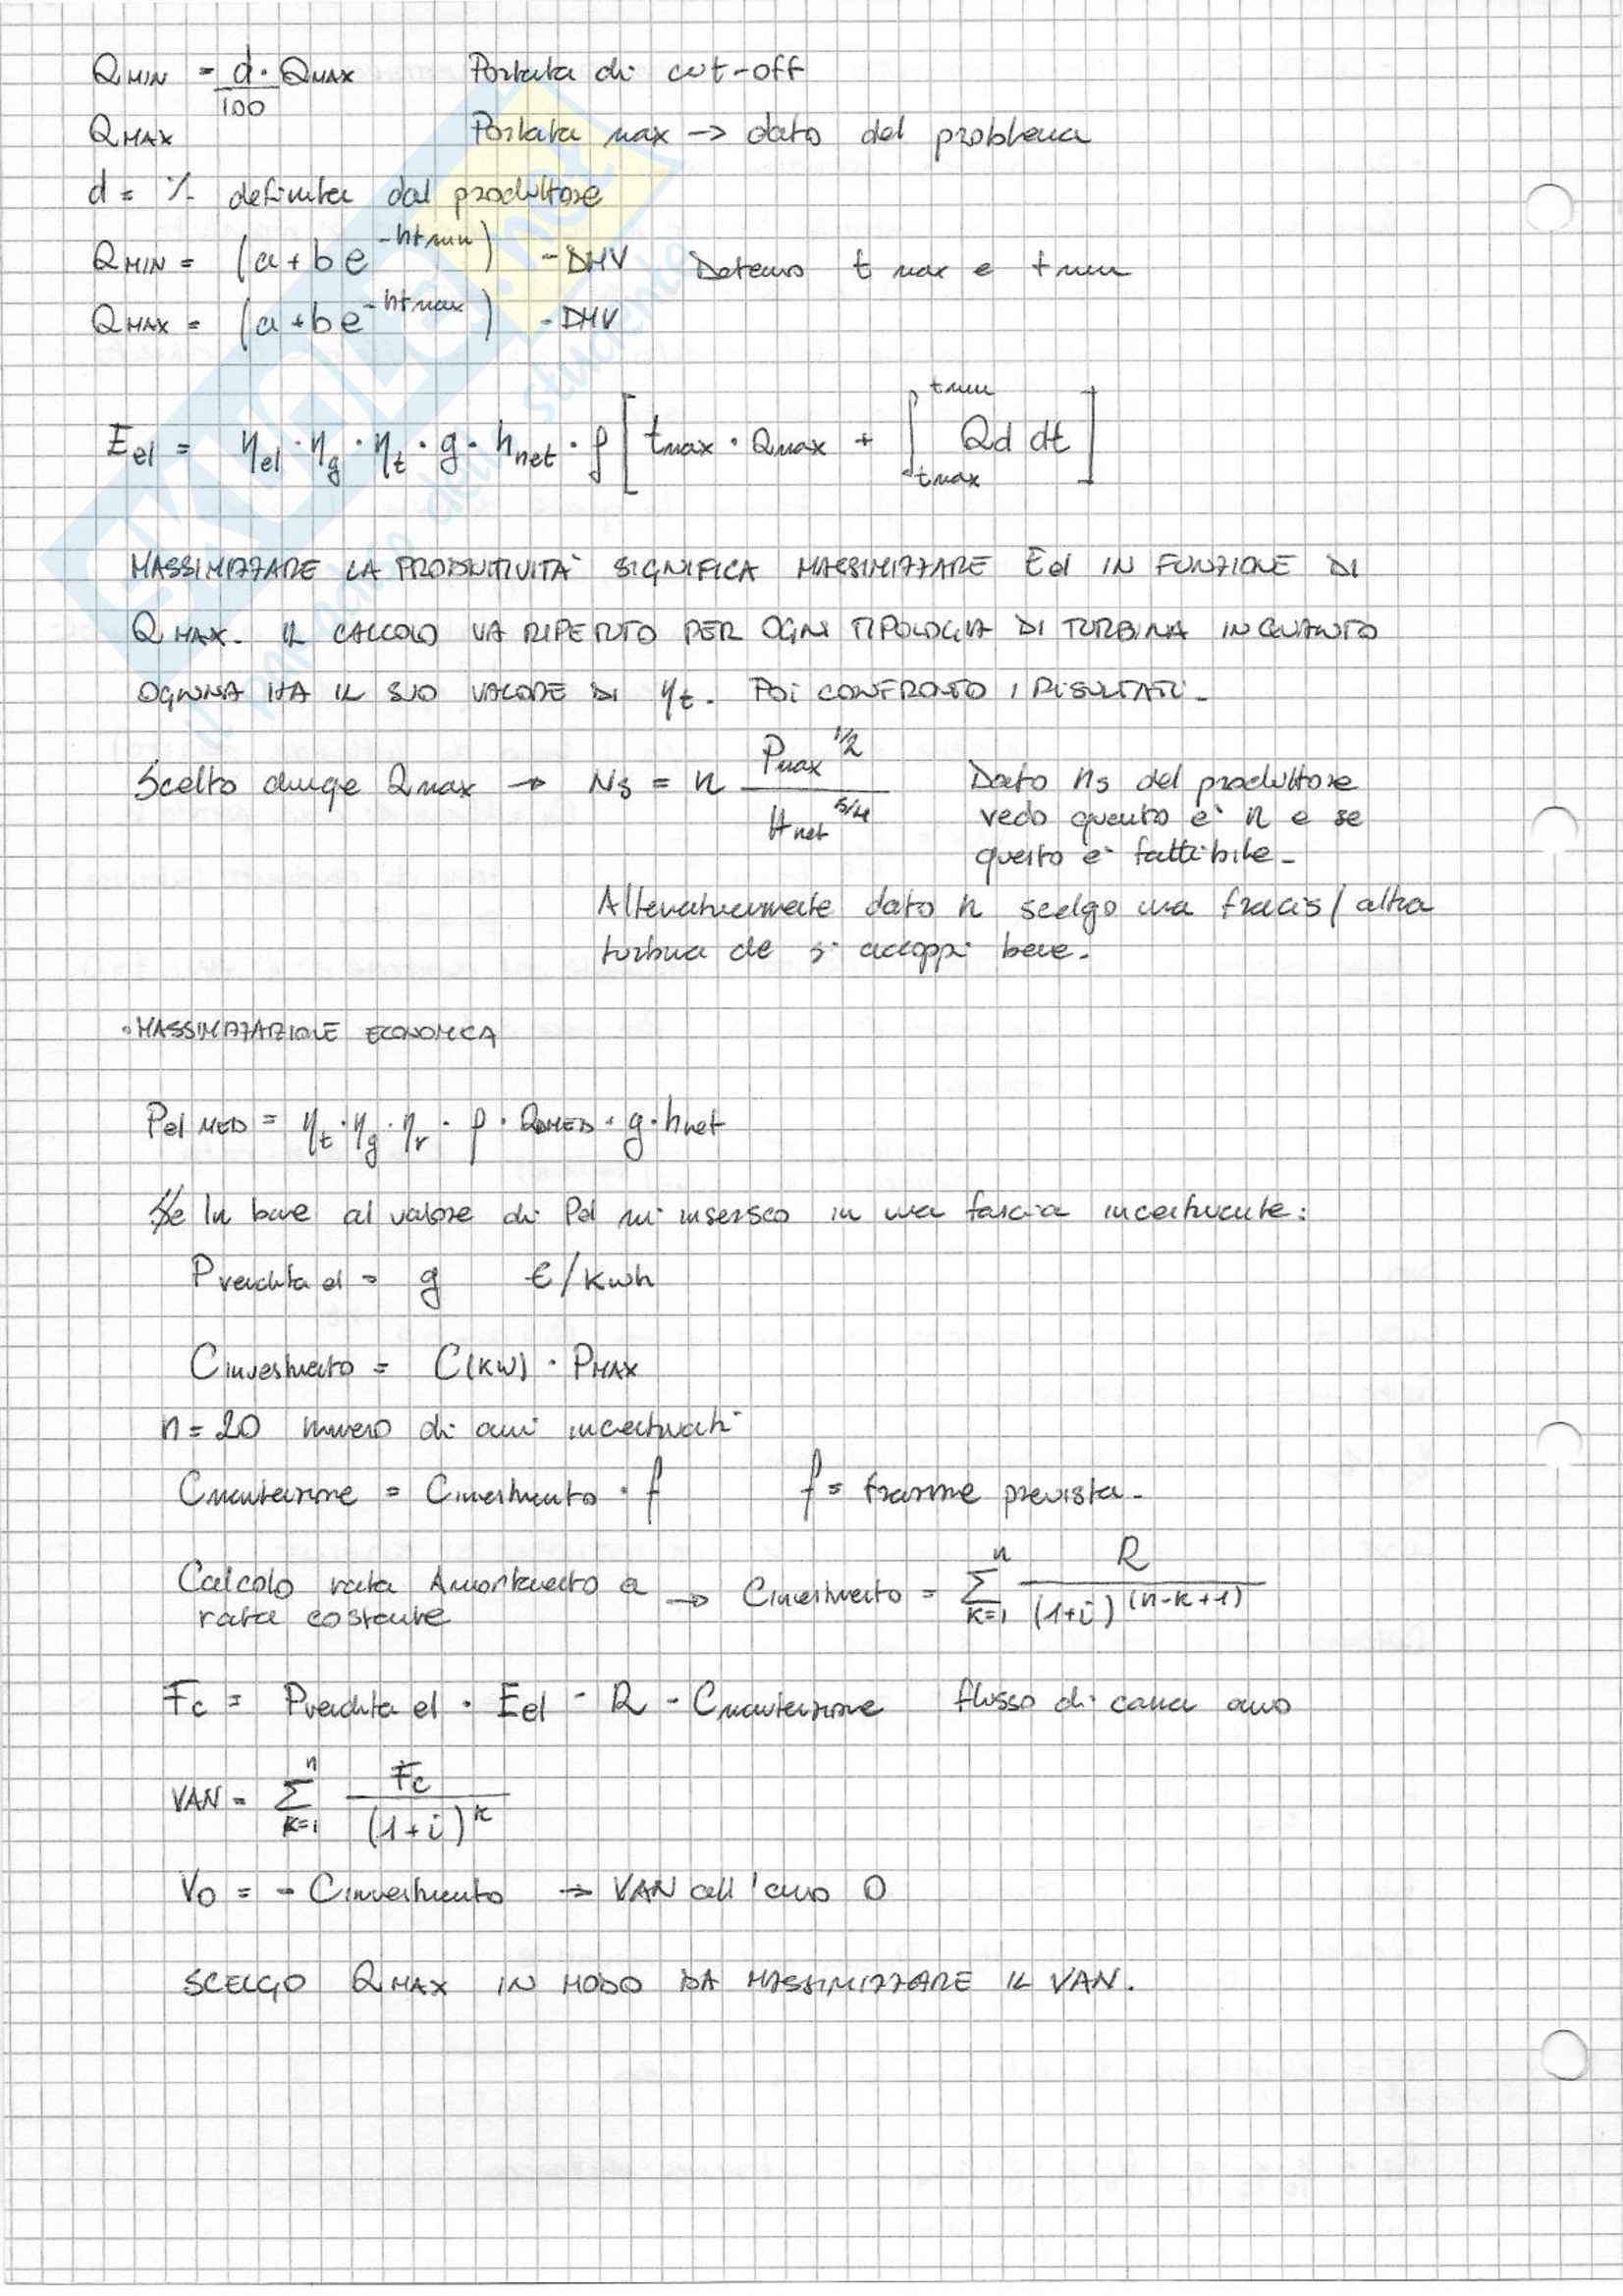 QMIN = d/100 · QMAX Portata di cut-off
QMAX Portata max → dato del problema
d = % definita dal produttore
QMIN = (a + b e^(-ht min)) - DMV Determino t max e t min
QMAX = (a + b e^(-ht max)) - DMV
Eel = ηel · ηg · ηt · g · hnet · ρ [ tmax · Qmax + ∫_tmax^tmin Qd dt ]
MASSIMIZZARE LA PRODUTTIVITÀ SIGNIFICA MASSIMIZZARE Eel IN FUNZIONE DI
QMAX. IL CALCOLO VA RIPETUTO PER OGNI TIPOLOGIA DI TURBINA IN QUANTO
OGNUNA HA IL SUO VALORE DI ηt. POI CONFRONTO I RISULTATI.
Scelto dunque Qmax → Ns = n Pmax^(1/2) / Hnet^(5/4) Dato ns del produttore
vedo quanto è n e se
questo è fattibile.
Alternativamente dato n scelgo una francis / altra
turbina che si accoppi bene.
• MASSIMIZZAZIONE ECONOMICA
Pel MED = ηt · ηg · ηr · ρ · QDMED · g · hnet
In base al valore di Pel mi inserisco in una fascia incentivante:
Pvendita el = g €/kwh
Cinvestimento = C(KW) · PMAX
n = 20 numero di anni incentivati
Cmanutenzione = Cinvestimento · f f = frazione prevista.
Calcolo rata Ammortamento a → Cinvestimento = Σ_(k=1)^n R / (1+i)^(n-k+1)
rata costante
Fc = Pvendita el · Eel - R - Cmanutenzione flusso di cassa anno
VAN = Σ_(k=1)^n Fc / (1+i)^k
V0 = - Cinvestimento → VAN all'anno 0
SCELGO QMAX IN MODO DA MASSIMIZZARE IL VAN.